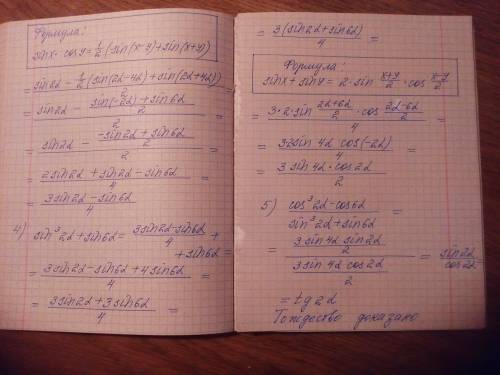 Формула:
sinx · cosy = 1/2 (sin(x-y) + sin(x+y))
= sin2α - 1/2 (sin(2α-4α) + sin(2α+4α)) / 2 =
= sin2α - (sin(-2α) + sin6α)/2 / 2 =
= sin2α - (-sin2α + sin6α)/2 / 2 =
= (2sin2α + sin2α - sin6α) / 4 =
= (3sin2α - sin6α) / 4
4) sin³2α + sin6α = (3sin2α - sin6α) / 4 +
+ sin6α =
= (3sin2α - sin6α + 4sin6α) / 4 =
= (3sin2α + 3sin6α) / 4 =
= 3(sin2α + sin6α) / 4 =
Формула:
sinx + siny = 2 · sin (x+y)/2 · cos (x-y)/2
= 3 · 2 · sin (2α+6α)/2 · cos (2α-6α)/2 / 4 =
= 3·2sin4α cos(-2α) / 4 =
= 3 sin4α · cos2α / 2
5) (cos³2α - cos6α) / (sin³2α + sin6α) =
= (3 sin4α sin2α / 2) / (3 sin4α cos2α / 2) = sin2α / cos2α =
= tg2α
Тождество доказано